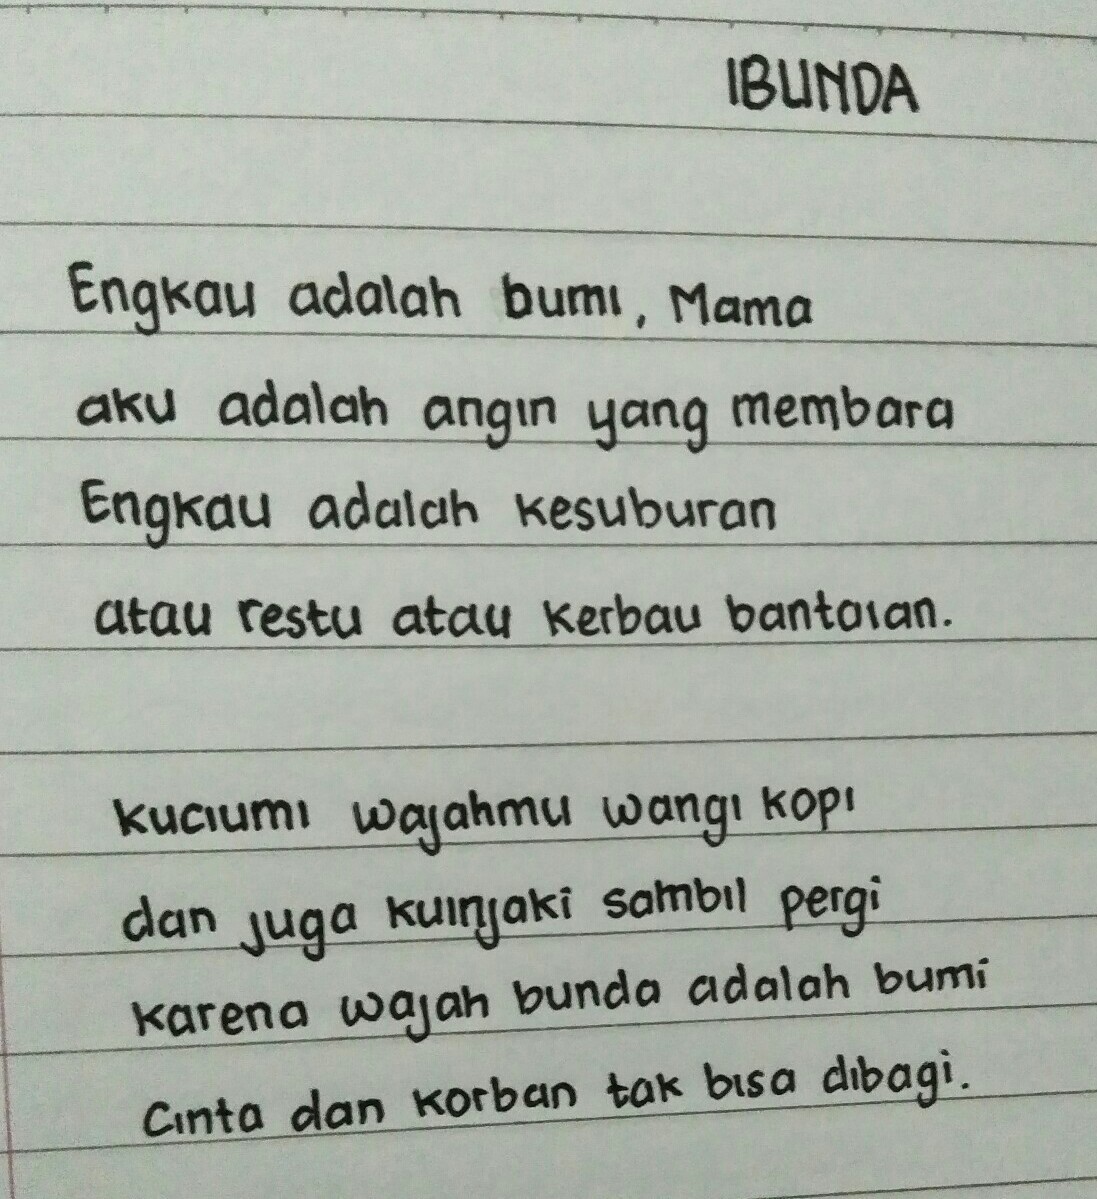 IBUNDA
Engkau adalah bumi, Mama
aku adalah angin yang membara
Engkau adalah kesuburan
atau restu atau kerbau bantaian.
kuciumi wajahmu wangi kopi
dan juga kuinjaki sambil pergi
karena wajah bunda adalah bumi
Cinta dan korban tak bisa dibagi.